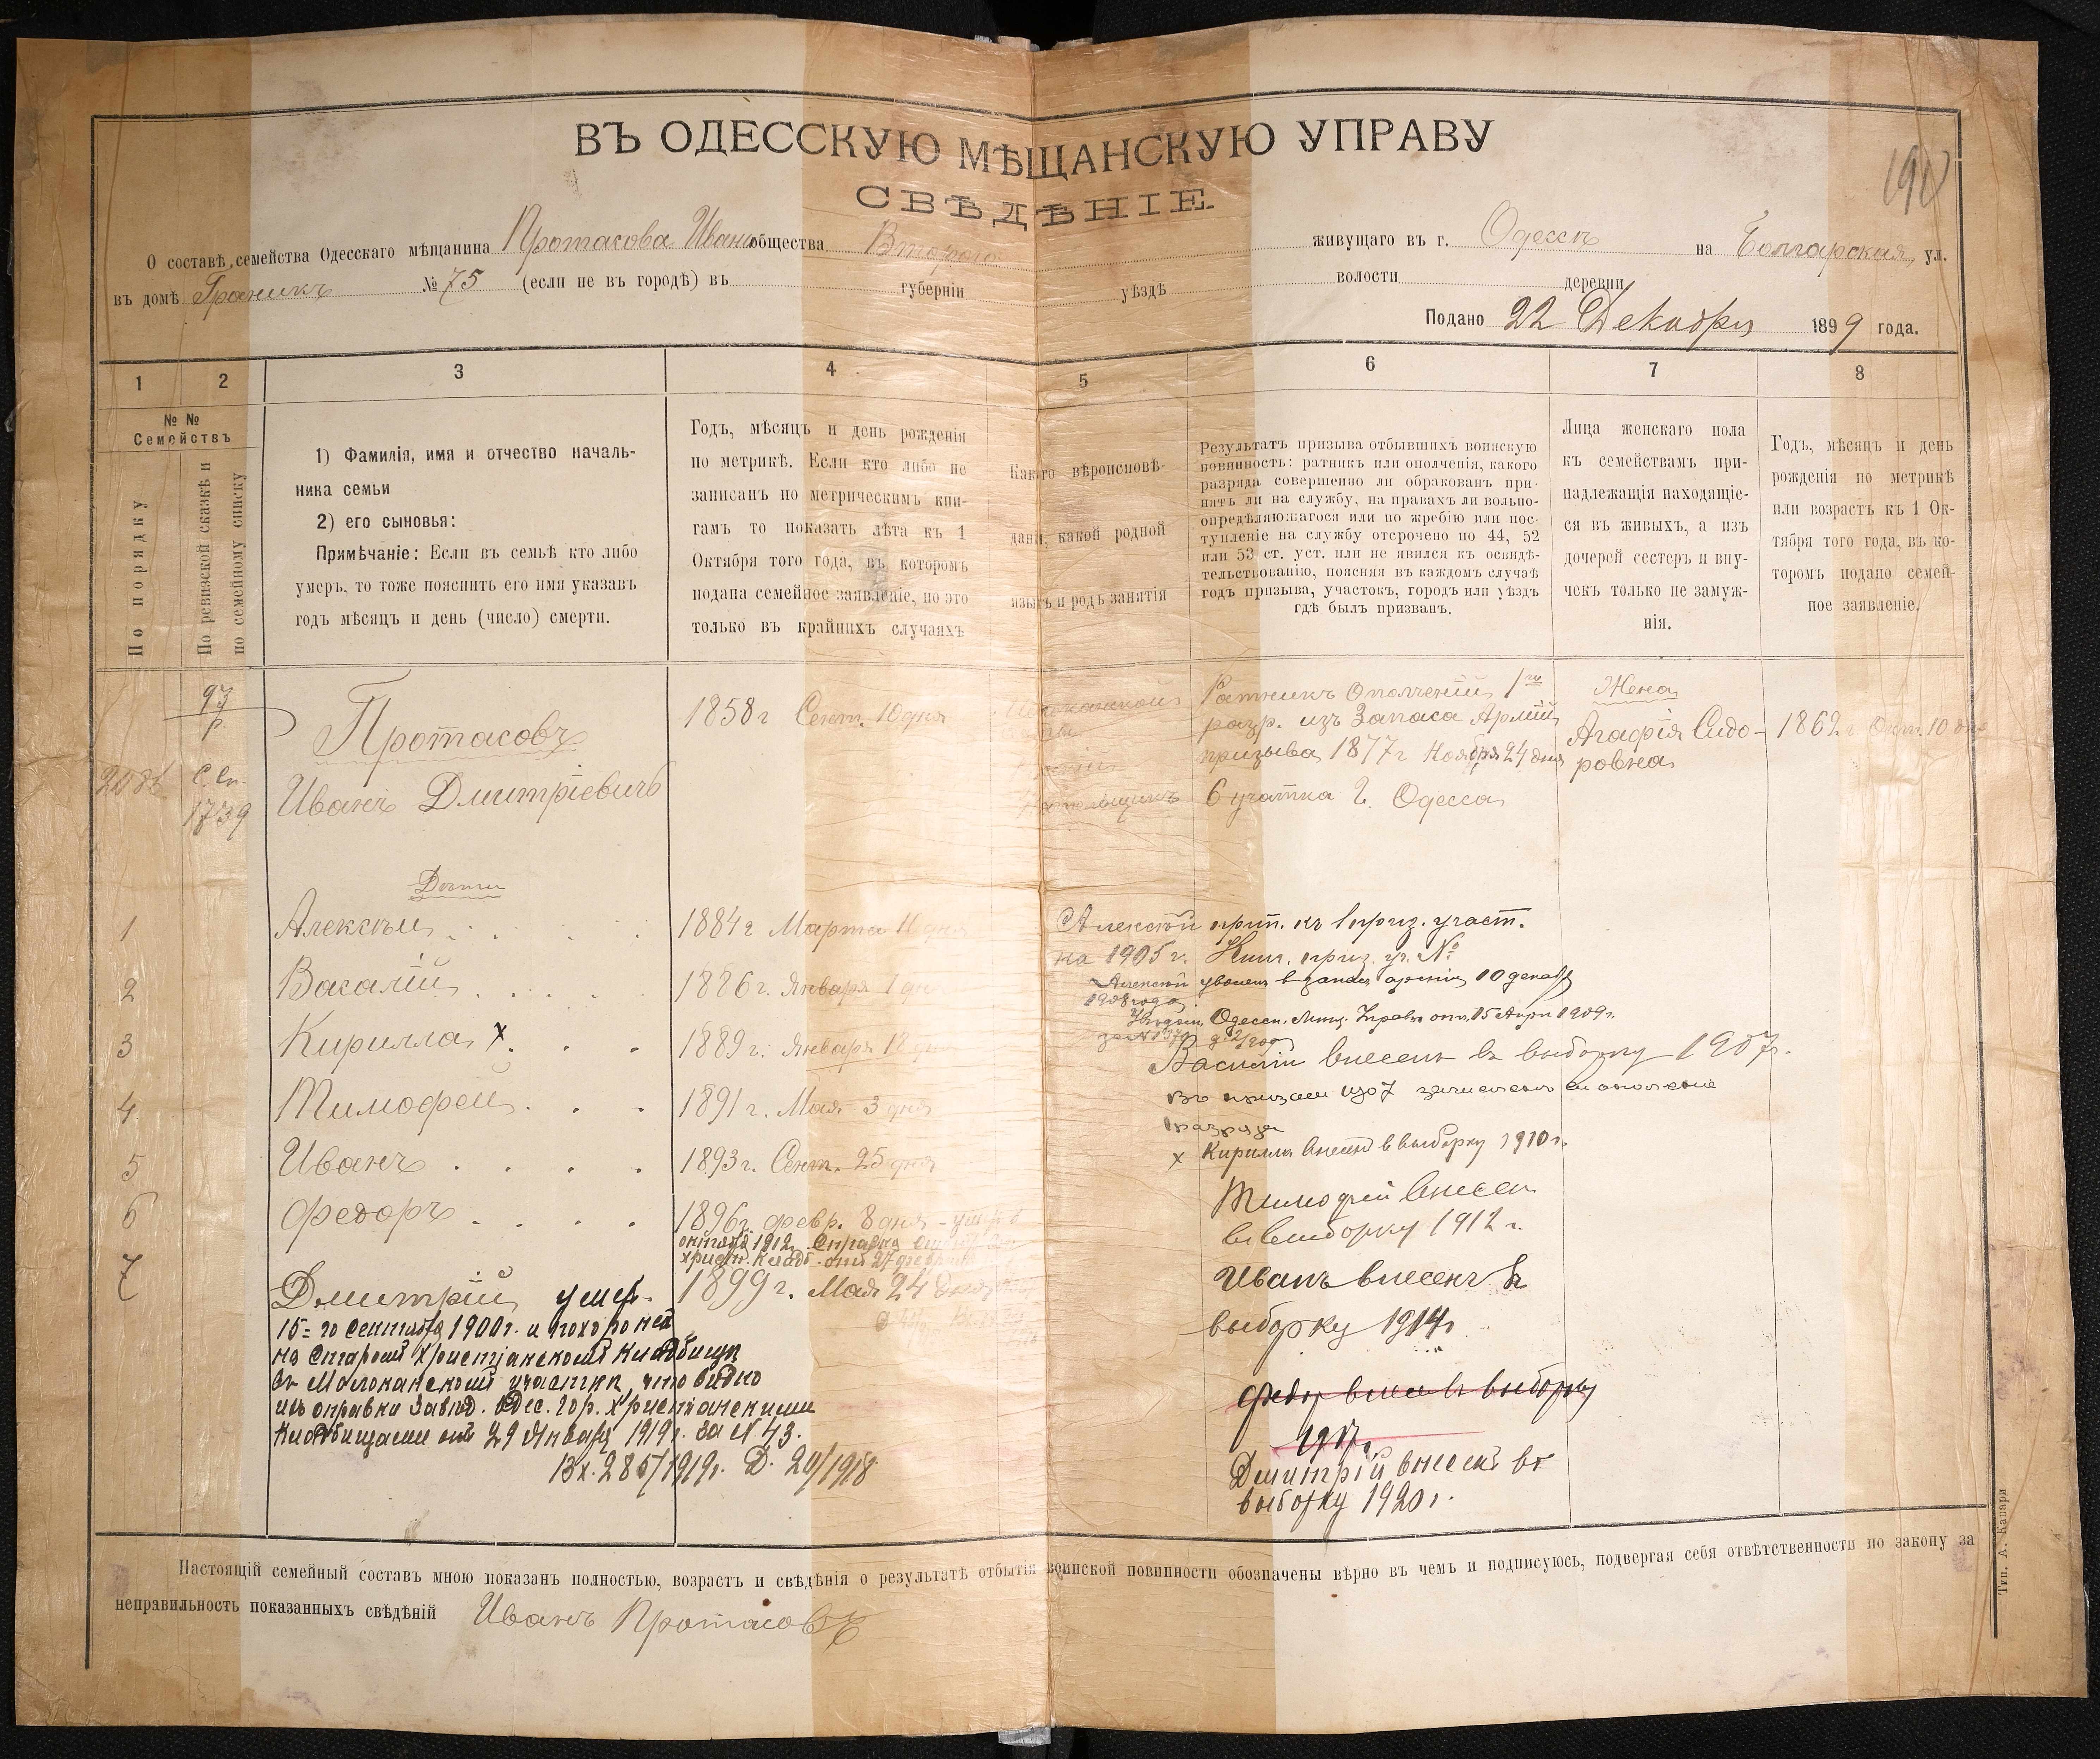 ВЪ ОДЕССКУЮ МѢЩАНСКУЮ УПРАВУ
СВѢДѢНІЕ
190
О составѣ семейства Одесскаго мѣщанина Протасова Ивана общества Второго живущаго въ г. Одессѣ на Болгарская ул.
въ домѣ № 75 (если не въ городѣ) въ губерніи уѣздѣ волости деревни
Подано 22 Декабря 1899 года.
1 2 3 4 5 6 7 8
№ №
Семействъ
По порядку
По ревизской сказкѣ и
по семейному списку
1) Фамилія, имя и отчество началь-
ника семьи
2) его сыновья:
Примѣчаніе: Если въ семьѣ кто либо
умеръ, то тоже пояснить его имя указавъ
годъ мѣсяцъ и день (число) смерти.
Годъ, мѣсяцъ и день рожденія
по метрикѣ. Если кто либо не
записанъ по метрическимъ кни-
гамъ то показать лѣта къ 1
Октября того года, въ которомъ
подана семейное заявленіе, но это
только въ крайнихъ случаяхъ
Какого вѣроисповѣ-
данія, какой родной
языкъ и родъ занятія
Результатъ призыва отбывшихъ воинскую
повинность: ратникъ или ополченія, какого
разряда совершенно ли обракованъ при-
нятъ ли на службу, на правахъ ли вольно-
опредѣляющагося или по жребію или пос-
тупленіе на службу отсрочено по 44, 52
или 53 ст. уст. или не явился къ освидѣ-
тельствованію, поясняя въ каждомъ случаѣ
годъ призыва, участокъ, городъ или уѣздъ
гдѣ былъ призванъ.
Лица женскаго пола
къ семействамъ при-
надлежащія находящіе-
ся въ живыхъ, а изъ
дочерей сестеръ и вну-
чекъ только не замуж-
нія.
Годъ, мѣсяцъ и день
рожденія по метрикѣ
или возрастъ къ 1 Ок-
тября того года, въ ко-
торомъ подано семей-
ное заявленіе.
93
р.
2086 С. Сп.
1739
Протасовъ
Иванъ Дмитріевичъ
1858 г Сент. 10 дня
Ратникъ Ополченій 1го
разр. изъ Запаса Арміи
призыва 1877 г Ноября 24 дня
6 участка г. Одесса
Жена
Агафія Сидо-
ровна
1862 г Окт. 10 дня
Дѣти
1 Алексѣй 1884 г Марта
2 Василій 1886 г. Января 1 дня
3 Кирилла х 1889 г. Января 18 дня
4 Тимофей 1891 г. Мая 3 дня
5 Иванъ 1893 г. Сент. 25 дня
6 Федоръ 1896 г. февр. 8 дня - умеръ
октября 1912 Справка
христ. кладб. отъ 27 февраля
7 Дмитрій умер. 1899 г. Мая 24 дня
15 го Сентября 1900 г. и похоронен
на Старом Христіанском Кладбищѣ
въ Молоканском участкѣ, что видно
изъ справки Завѣд. Одес. Гор. Христіанскими
Кладбищами отъ 29 Января 1919 г. за N 43.
Вх. 285/1919 г. Д. 20/1918
Алексѣй прип. къ 1 приз. участ.
на 1905 г. приз. уч. №
Алексѣй уволенъ в запас арміи 10 декабр
1908 года
Одесск. Мѣщ. Управы отъ 15 Апр 1909 г.
Василій внесенъ въ выборку 1907 г.
Въ призыв 1907 зачисленъ въ ополчение
1 разряда
х Кирилла внесен в выборку 1910 г.
Тимофей внесен
въ выборку 1912 г.
Иванъ внесенъ въ
выборку 1914 г
Федор внесен в выборку
1917 г.
Дмитрій внесенъ въ
выборку 1920 г.
Настоящій семейный составъ мною показанъ полностью, возрастъ и свѣдѣнія о результатѣ отбытія воинской повинности обозначены вѣрно въ чемъ и подписуюсь, подвергая себя отвѣтственности по закону за
неправильность показанныхъ свѣдѣній Иванъ Протасовъ
Тип. А. Капари